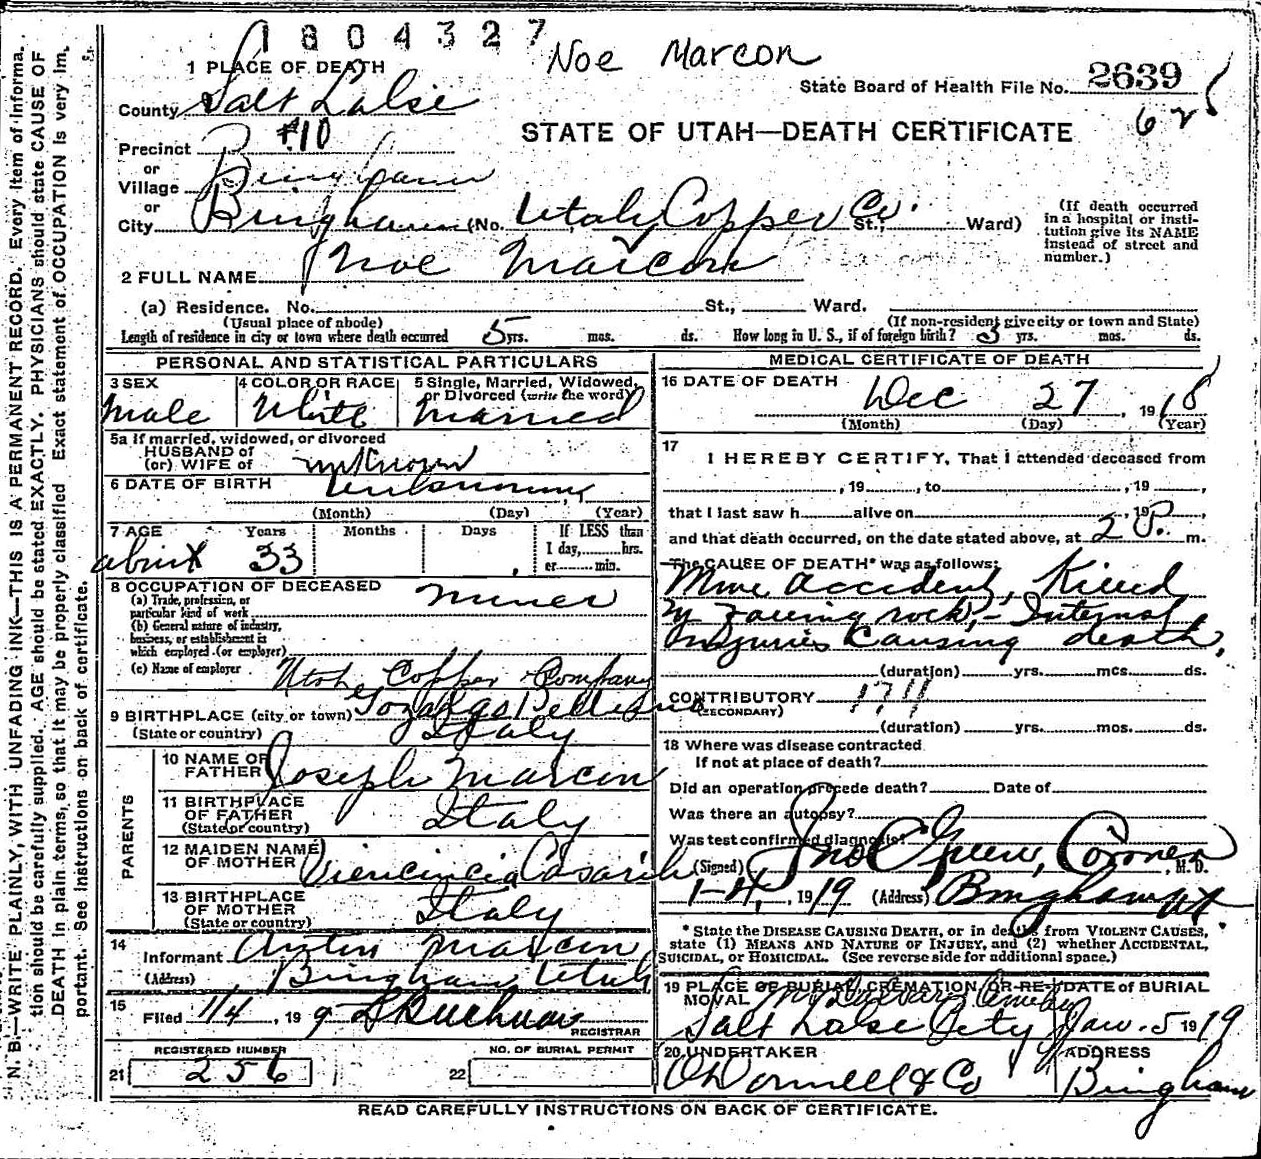 1804327
Noe Marcon
1 PLACE OF DEATH
State Board of Health File No. 2639
County Salt Lake
62
STATE OF UTAH—DEATH CERTIFICATE
Precinct #10
or
Village Bingham
or
City Bingham (No. Utah Copper Co. St., Ward)
(If death occurred in a hospital or institution give its NAME instead of street and number.)
2 FULL NAME Noe Marcon
(a) Residence. No. St., Ward.
(Usual place of abode) (If non-resident give city or town and State)
Length of residence in city or town where death occurred 5 yrs. mos. ds. How long in U. S., if of foreign birth? 5 yrs. mos. ds.
PERSONAL AND STATISTICAL PARTICULARS
3 SEX Male
4 COLOR OR RACE White
5 Single, Married, Widowed, or Divorced (write the word) Married
5a If married, widowed, or divorced
HUSBAND of
(or) WIFE of unknown
6 DATE OF BIRTH unknown
(Month) (Day) (Year)
7 AGE about 33 Years Months Days If LESS than 1 day, hrs. or min.
8 OCCUPATION OF DECEASED
(a) Trade, profession, or particular kind of work Miner
(b) General nature of industry, business, or establishment in which employed (or employer)
(c) Name of employer Utah Copper Company
9 BIRTHPLACE (city or town)
(State or country) Italy
PARENTS
10 NAME OF FATHER Joseph Marcon
11 BIRTHPLACE OF FATHER (State or country) Italy
12 MAIDEN NAME OF MOTHER
13 BIRTHPLACE OF MOTHER (State or country) Italy
14 Informant Anton Marcon
(Address) Bingham Utah
15 Filed 1/4, 199 REGISTRAR
REGISTERED NUMBER
21 256
NO. OF BURIAL PERMIT
22
MEDICAL CERTIFICATE OF DEATH
16 DATE OF DEATH
Dec 27, 1918
(Month) (Day) (Year)
17
I HEREBY CERTIFY, That I attended deceased from
, 19 , to , 19 ,
that I last saw h alive on , 19 ,
and that death occurred, on the date stated above, at 2 P. m.
The CAUSE OF DEATH* was as follows:
Mine accident, Killed
by Falling rock,- Internal
Injuries Causing death.
(duration) yrs. mos. ds.
CONTRIBUTORY
(SECONDARY)
(duration) yrs. mos. ds.
18 Where was disease contracted
If not at place of death?
Did an operation precede death? Date of
Was there an autopsy?
Was test confirmed diagnosis?
(Signed) Jno C Green, Coroner, M. D.
1-4, 1919 (Address) Bingham Ut
* State the DISEASE CAUSING DEATH, or in deaths from VIOLENT CAUSES,
state (1) MEANS AND NATURE OF INJURY, and (2) whether ACCIDENTAL,
SUICIDAL, or HOMICIDAL. (See reverse side for additional space.)
19 PLACE OF BURIAL, CREMATION, OR REMOVAL Mt Calvary Cemetery
Salt Lake City
DATE of BURIAL
Jan. 5 1919
20 UNDERTAKER
O'Donnell & Co
ADDRESS
Bingham
READ CAREFULLY INSTRUCTIONS ON BACK OF CERTIFICATE.
N. B.—WRITE PLAINLY, WITH UNFADING INK—THIS IS A PERMANENT RECORD. Every item of informa-
tion should be carefully supplied. AGE should be stated EXACTLY. PHYSICIANS should state CAUSE OF
DEATH in plain terms, so that it may be properly classified Exact statement of OCCUPATION is very im-
portant. See instructions on back of certificate.